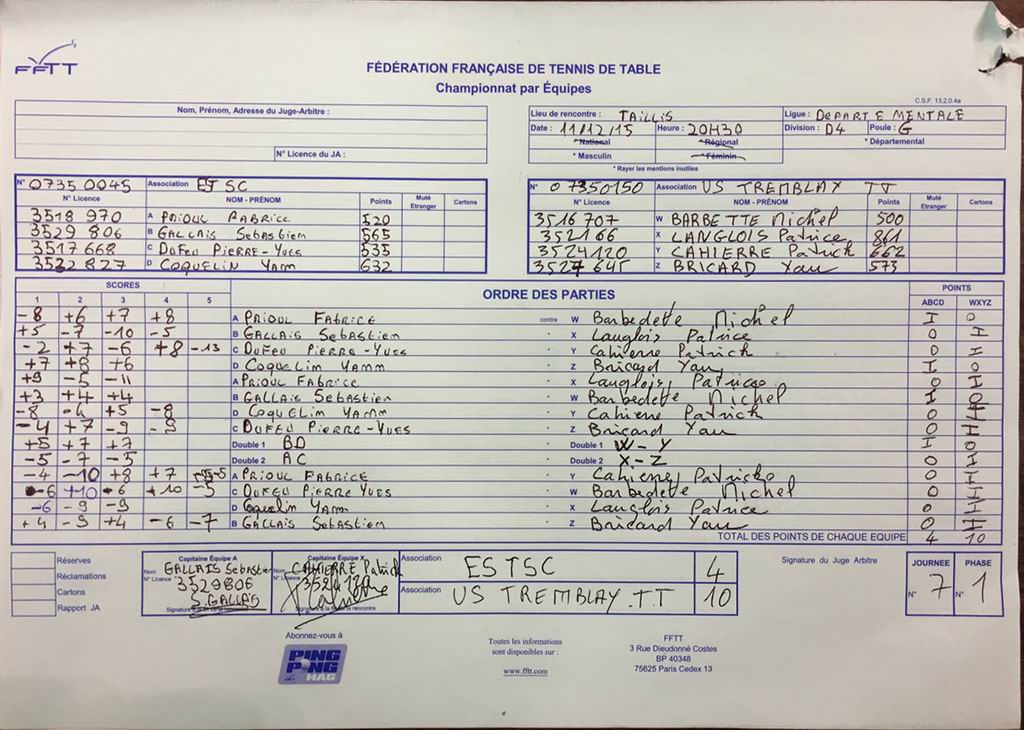 FFTT
FÉDÉRATION FRANÇAISE DE TENNIS DE TABLE
Championnat par Équipes
C.S.F. 13.2.0.4a
Nom, Prénom, Adresse du Juge-Arbitre :
N° Licence du JA :
Lieu de rencontre : TAILLIS Ligue : DEPARTEMENTALE
Date : 11/12/15 Heure : 20H30 Division : D4 Poule : G
* National * Régional * Départemental
* Masculin * Féminin
* Rayer les mentions inutiles
N° 0735 0045 Association ESTSC
N° Licence NOM - PRÉNOM Points Muté Etranger Cartons
3518 970 A PRIOUL FABRICE 520
3529 806 B GALLAIS Sebastien 565
3517 668 C DUFEU PIERRE-YVES 535
3532 827 D COQUELIN YANN 632
N° 07350150 Association US TREMBLAY TT
N° Licence NOM - PRÉNOM Points Muté Etranger Cartons
3516 707 W BARBETTE Michel 500
352166 X LANGLOIS Patrice 861
3524120 Y CAHIERRE Patrick 662
3527 645 Z BRICARD Yan 573
SCORES ORDRE DES PARTIES POINTS
1 2 3 4 5 ABCD WXYZ
-8 +6 +7 +8 A PRIOUL FABRICE contre W Barbedette Michel I 0
+5 -7 -10 -5 B GALLAIS Sebastien X Langlois Patrice 0
-2 +7 -6 +8 -13 C DUFEU PIERRE-YVES Y Cahierre Patrick 0
+7 +8 +6 D COQUELIN YANN Z Bricard Yan I 0
+9 -5 -11 A PRIOUL FABRICE X Langlois Patrice 0
+3 +4 +4 B GALLAIS Sebastien W Barbedette Michel I 0
-8 -4 +5 -8 D COQUELIN YANN Y Cahierre Patrick 0
-4 +7 -9 -9 C DUFEU PIERRE-YVES Z Bricard Yan 0
+5 +7 +7 Double 1 BD Double 1 W-Y I 0
-5 -7 -5 Double 2 AC Double 2 X-Z 0
-4 -10 +8 +7 -5 A PRIOUL FABRICE Y Cahierre Patrick 0
-6 +10 -6 +10 -5 C DUFEU PIERRE YVES W Barbedette Michel 0
-6 -9 -9 D Coquelin YANN X Langlois Patrice 0
+4 -9 +4 -6 -7 B GALLAIS Sebastien Z Bricard Yan 0
TOTAL DES POINTS DE CHAQUE EQUIPE 4 10
Réserves
Réclamations
Cartons
Rapport JA
Capitaine Équipe A
Nom GALLAIS Sebastien
N° Licence 3529806
S. GALLAIS
Capitaine Équipe X
Nom CAHIERRE Patrick
N° Licence 3524120
Association ESTSC 4
Association US TREMBLAY.TT 10
Signature du Juge Arbitre
JOURNEE N° 7
PHASE N° 1
Abonnez-vous à
PING PONG MAG
Toutes les informations
sont disponibles sur :
www.fftt.com
FFTT
3 Rue Dieudonné Costes
BP 40348
75625 Paris Cedex 13